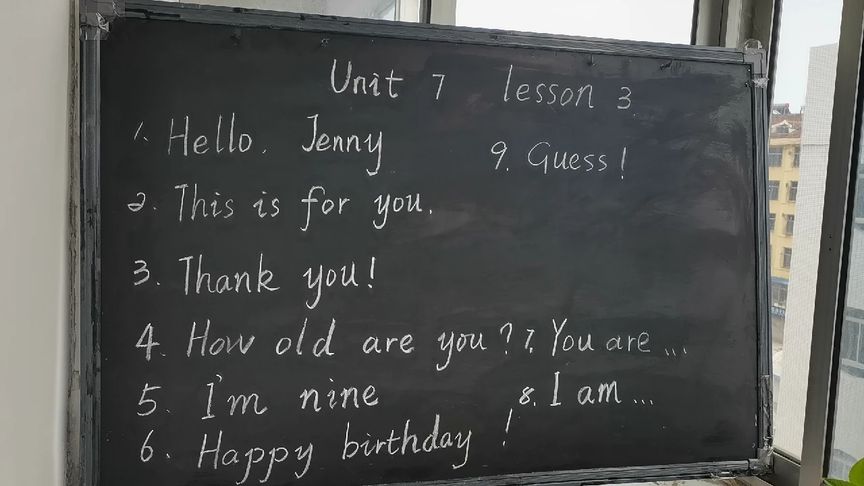 Unit 7 lesson 3
1. Hello. Jenny
2. This is for you.
3. Thank you!
4. How old are you?
5. I'm nine
6. Happy birthday!
7. You are ...
8. I am ...
9. Guess!